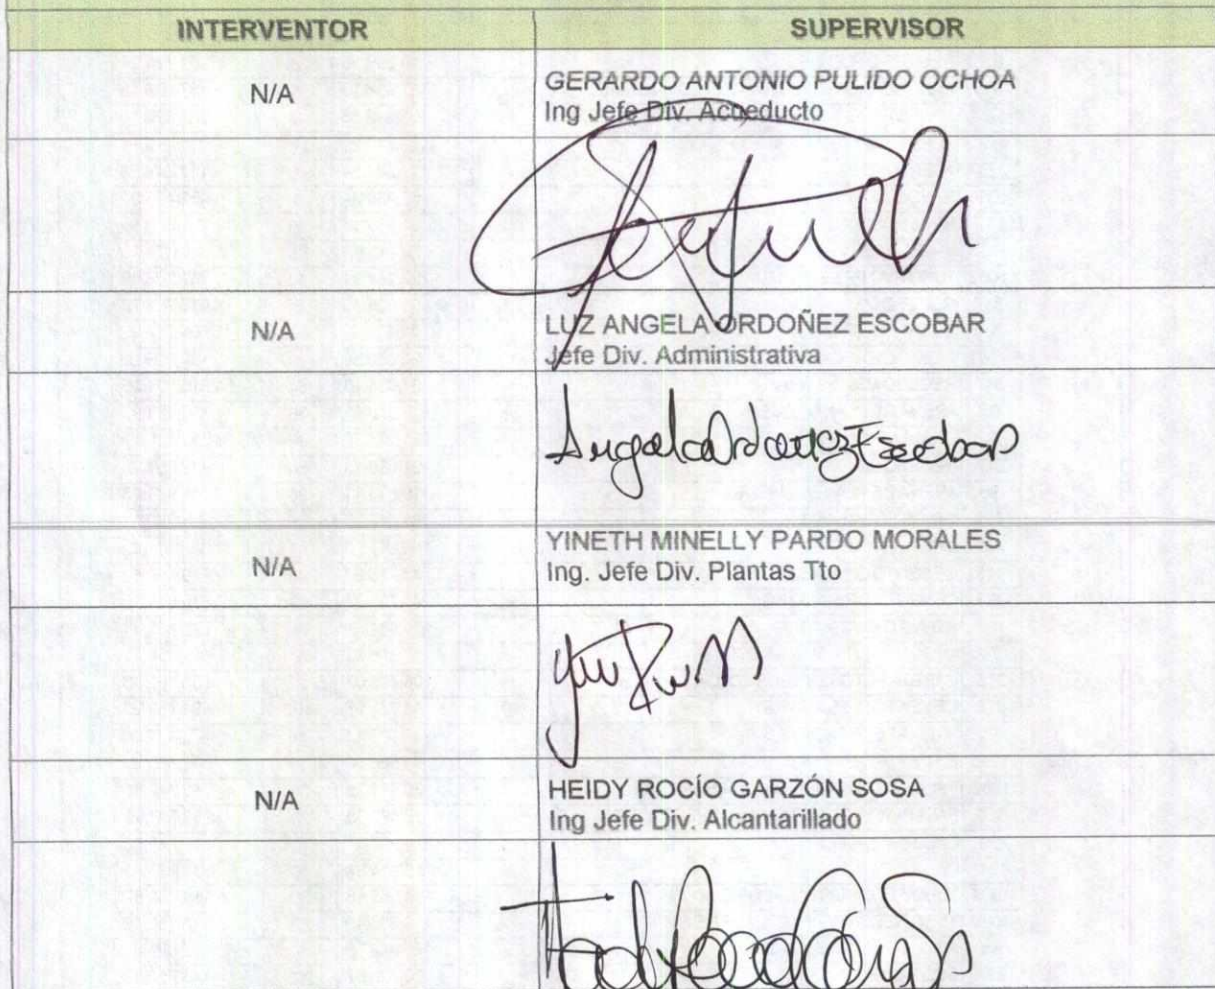 INTERVENTOR SUPERVISOR
N/A GERARDO ANTONIO PULIDO OCHOA
Ing Jefe Div. Acueducto
N/A LUZ ANGELA ORDOÑEZ ESCOBAR
Jefe Div. Administrativa
Angela Ordoñez Escobar
N/A YINETH MINELLY PARDO MORALES
Ing. Jefe Div. Plantas Tto
N/A HEIDY ROCÍO GARZÓN SOSA
Ing Jefe Div. Alcantarillado